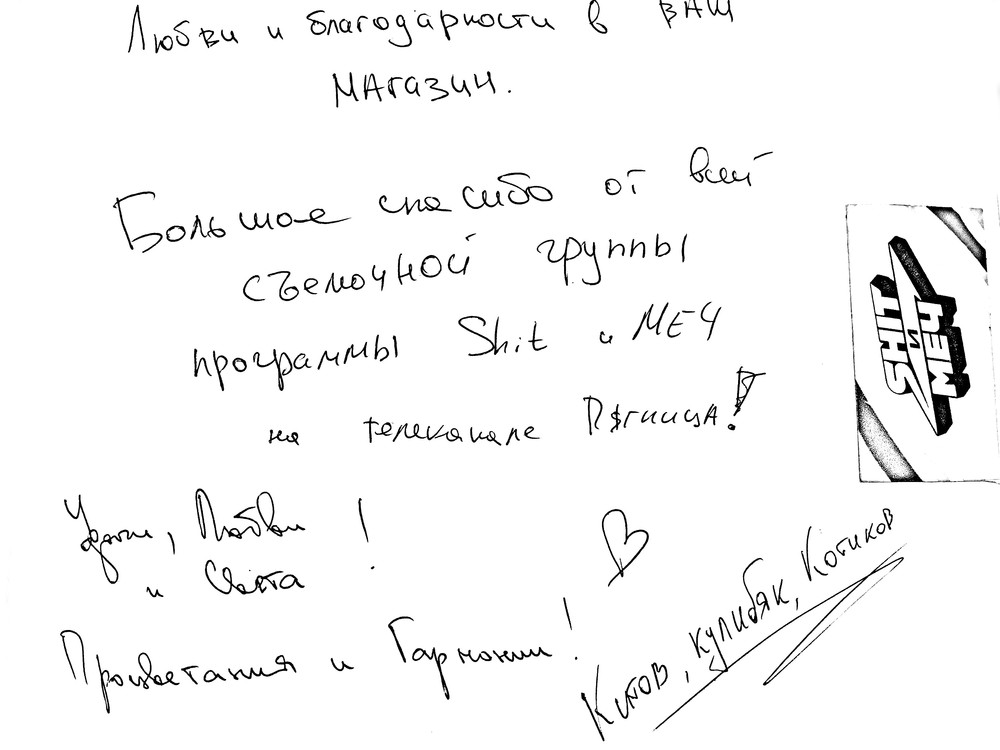 Любви и благодарности в ВАШ
МАГАЗИН.
Большое спасибо от всей
съемочной группы
программы Shit и МЕЧ
на телеканале Пятница!
Удачи, Любви!
и Света
Процветания и Гармонии!
Китов, Кулибяк, Котиков
SHIT
И
МЕЧ